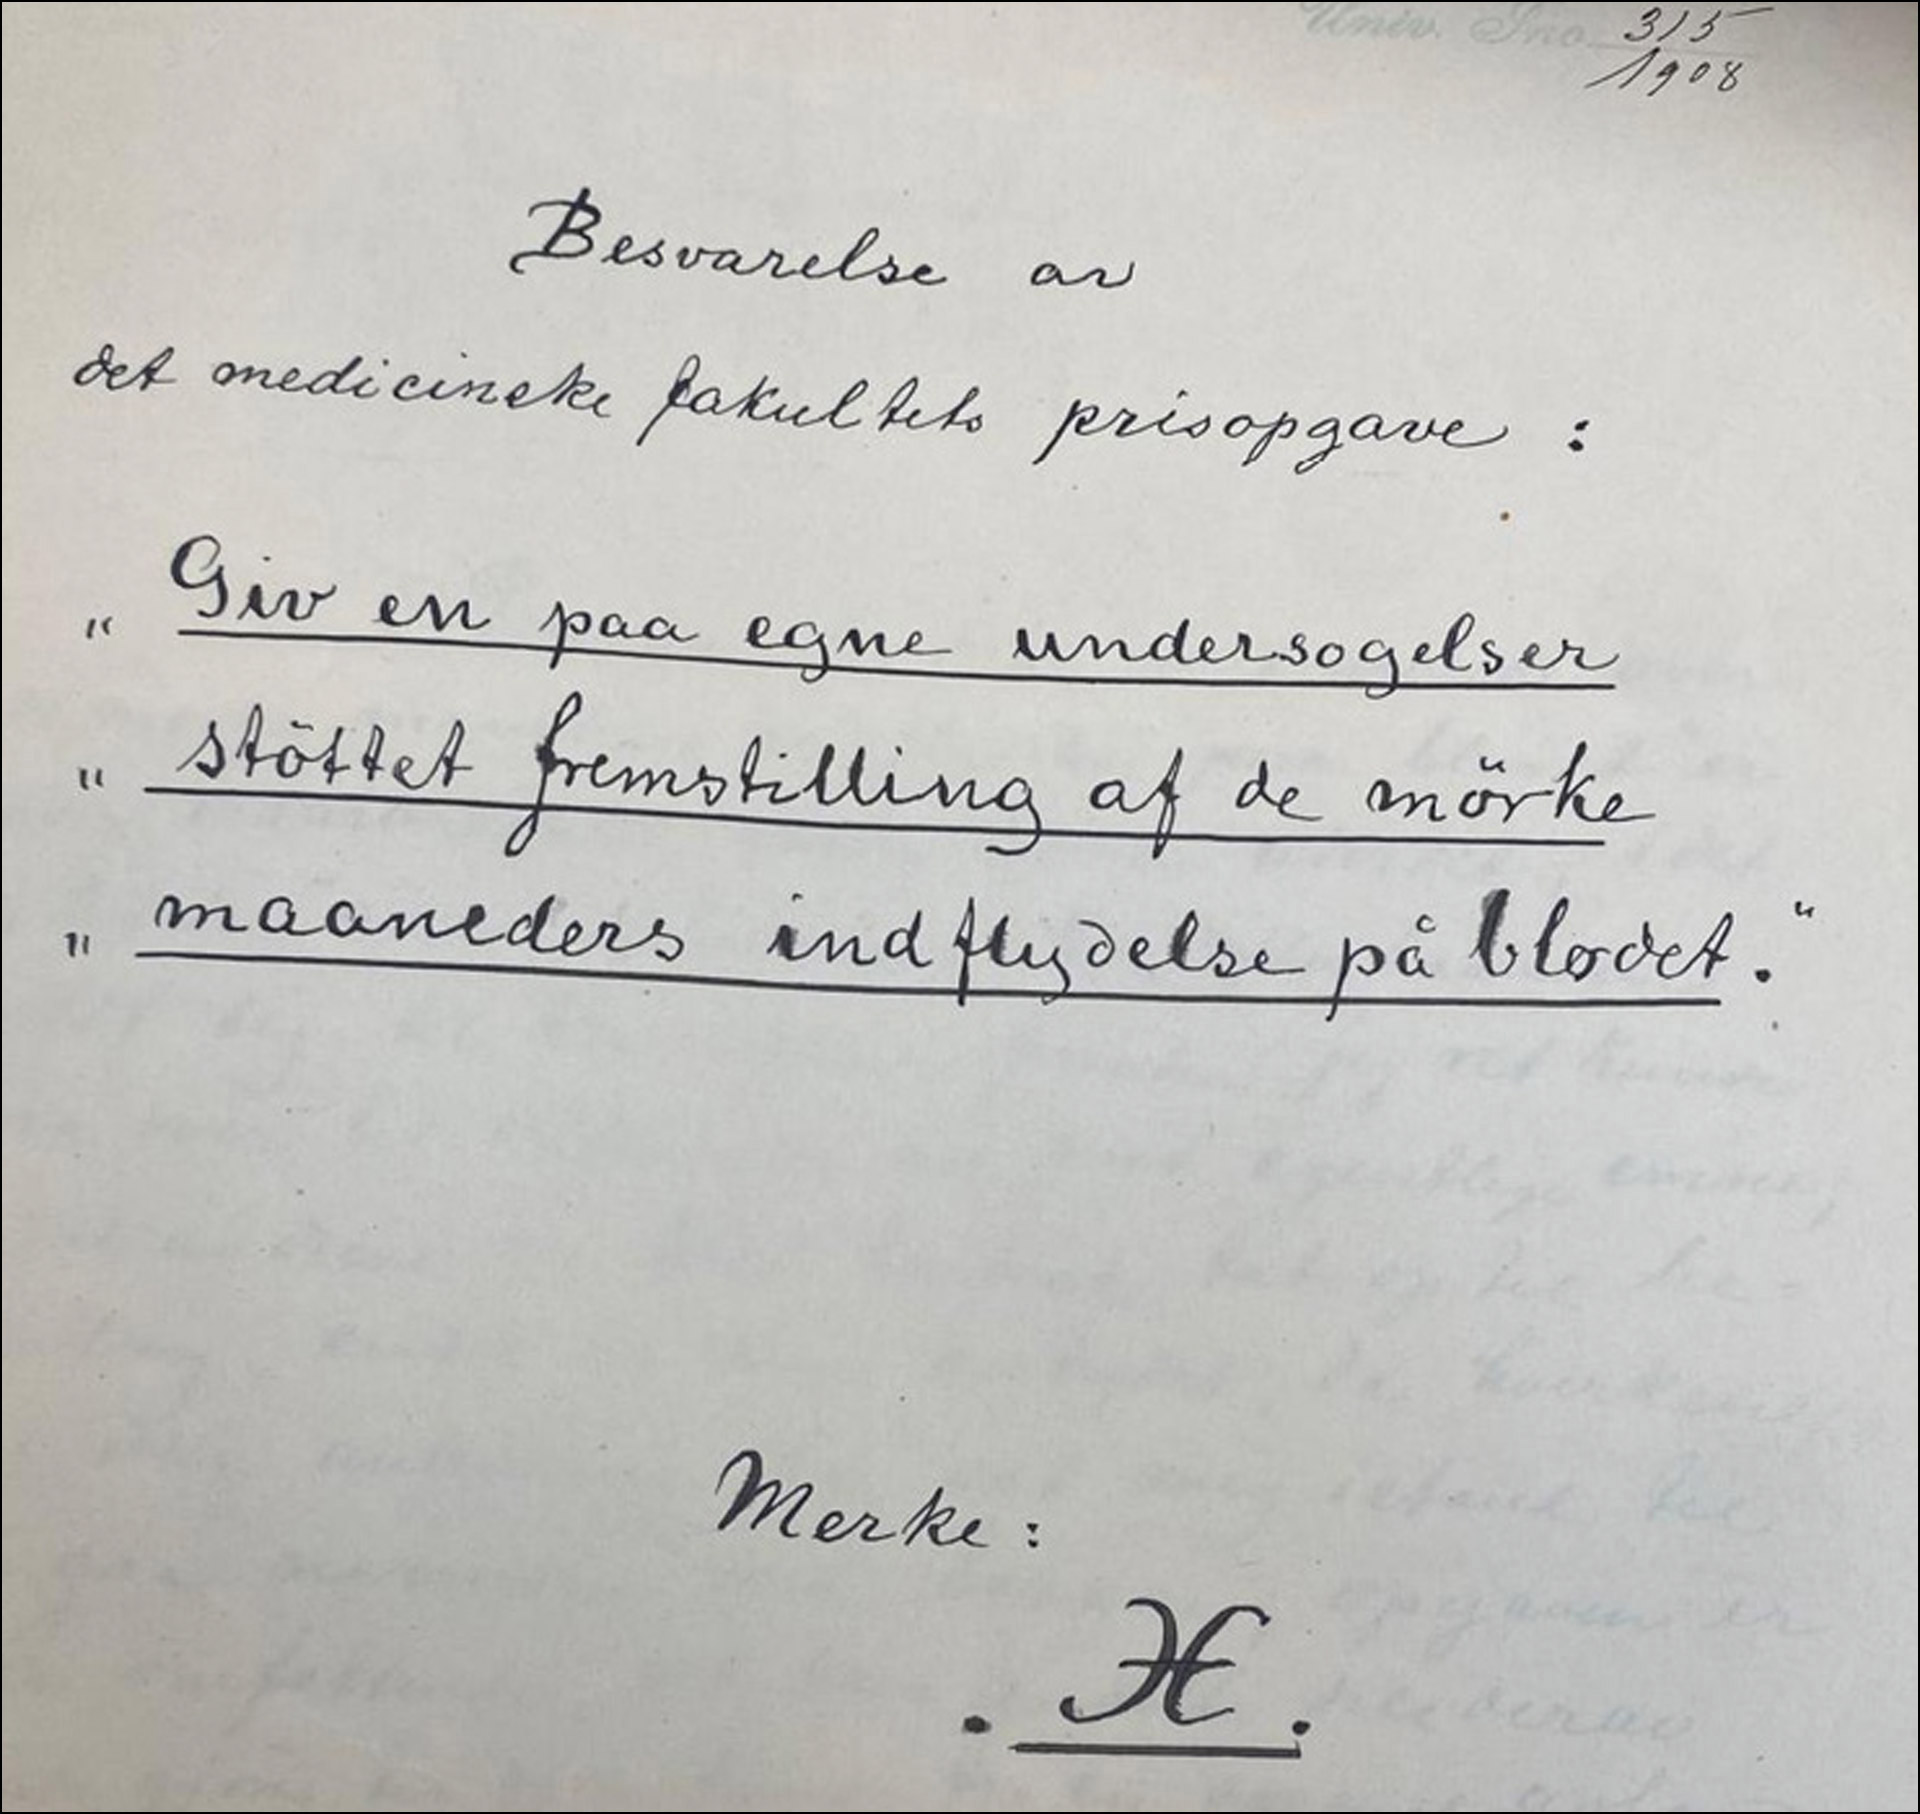 Univ. Jno. 315
1908
Besvarelse av
det medicinske fakultets prisopgave :
„ Giv en paa egne undersogelser
„ stöttet fremstilling af de mörke
„ maaneders indflydelse på blodet."
Merke :
. H .